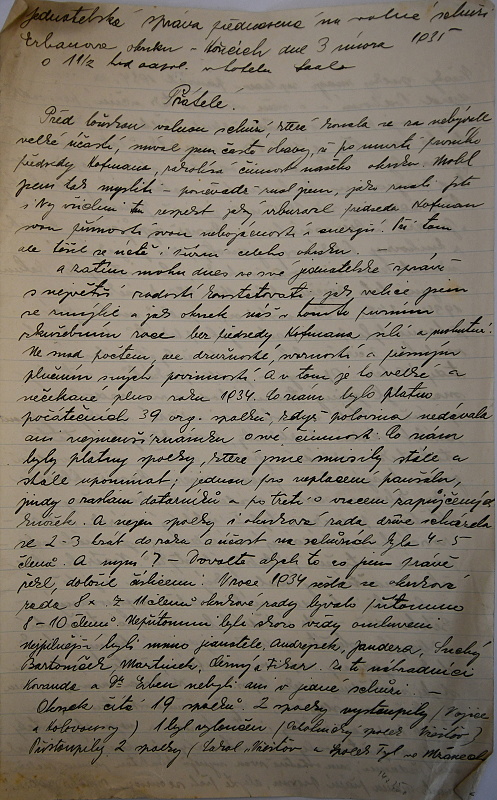 Jednatelská zpráva přednesená na valné schůzi
Erbanova okrsku - Hořicích dne 3 února 1935
o 1 1/2 hod odpol. v hotelu Saale
Přátelé.
Před loňskou valnou schůzí, která konala se za nebývale
veliké účasti, museli jsme často obavy, že po úmrtí prvního
předsedy Hofmana, ochabne činnost našeho okrsku. Mohl
jsem tak mysliti - poněvadž znal jsem, jako znali jste
i Vy všichni ten respekt jaký vzbuzoval předseda Hofman
svou přísností svou nebojácností a energií. Při tom
ale těšil se úctě i sboru celého okrsku. -
a zatím mohu dnes ve své jednatelské zprávě
s největší radostí konstatovati, jak velice jsem
se zmýlil a jak okrsek náš v tomto prvním
zkušebním roce bez předsedy Hofmana sílí a mohutní.
Ne snad počtem, ale družností, svorností a přesným
plněním svých povinností. A v tom je to veliké a
nečekané plus roku 1934. Co nám bylo platno
počátečních 39 org. spolků, když polovina nedávala
ani nejmenší známku o své činnosti. Co nám
byly platny spolky, které jsme musily stále a
stále upomínat; jednou pro neplacení paušálu,
jindy o zaslání dotazníků a po třetí o vrácení zapůjčených
knížek. A nejen spolky i okrsková rada dříve scházela
se 2-3 krát do roka a účast na schůzích byla 4-5
členů. A nyní? - Dovolte abych to co jsem právě
řekl, doložil číslicemi. V roce 1934 sešla se okrsková
rada 8x. Z 11 členů okrskové rady bývalo přítomno
8-10 členů. Nepřítomní byli skoro vždy omluveni
Nejpilnější byli mimo jednatele, Andrejsek, Jandera, Suchý
Bartoníček Martinek, Černý a Fikar. Za to náhradníci
Kovanda a Dr Erben nebyli ani v jedné schůzi. -
Okrsek čítá 19 spolků, 2 spolky vystoupily (Vojice
a Kolovousy) 1 byl vyloučen (Ochotnický spolek Miletín)
Přistoupily 2 spolky (Sokol Miletín a Spolek Tyl ve Mžanech)